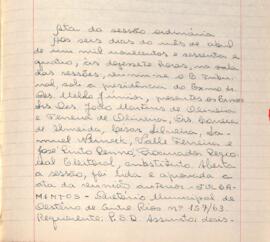 Ata da sessão ordinária
Aos seis dias do mês de abril
de um mil novecentos e sessenta e
quatro, às dezessete horas, na sala
das sessões, reuniu-se o E. Tribu-
nal, sob a presidência do Exmo Sr.
Des. Mello Júnior, presentes os Exmos
Srs. Des. João Martins de Oliveira
e Ferreira de Oliveira, Drs.
de Almeida, Cesar Silveira, Sa-
muel Werneck, Valle Ferreira e
José Pinto Procurador Regio-
nal Eleitoral, substituto. Aberta
a sessão, foi lida e aprovada a
ata da reunião anterior. - JULGA-
MENTOS - Diretório Municipal de
Destêrro de Entre Rios nº 157/63.
Requerente: P.S.D. Assunto: